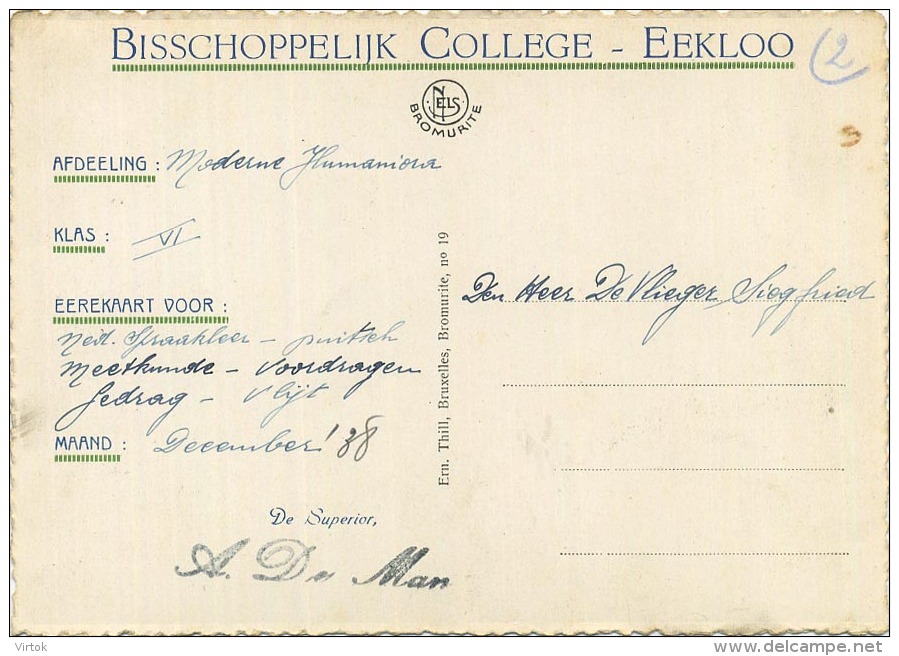 BISSCHOPPELIJK COLLEGE - EEKLOO
2
NELS
BROMURITE
AFDEELING : Moderne Humaniora
KLAS : VI
EEREKAART VOOR :
Ned. Spraakleer - Duitsch
Meetkunde - Voordragen
Gedrag - Vlijt
MAAND : December '38
De Superior,
A. De Man
Ern. Thill, Bruxelles, Bromurite, no 19
Den Heer De Vlieger Siegfried
Virtok
delcampe.net